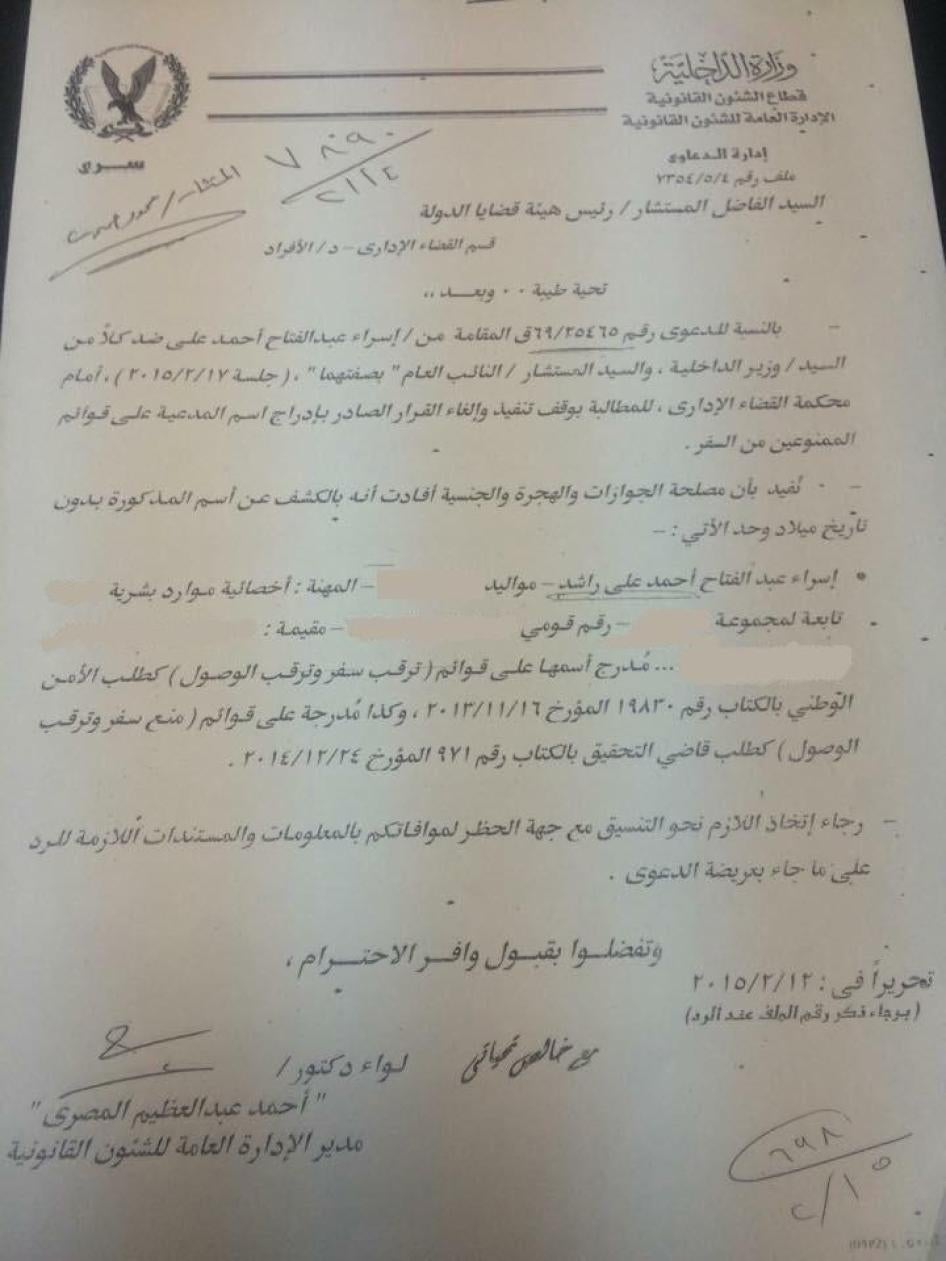 وزارة الداخلية
قطاع الشئون القانونية
الإدارة العامة للشئون القانونية
إدارة الدعاوى
ملف رقم ٧٣٥٤/٥/٤
سرى
٧٨٩٠
٢/١٤
المستشار/ محمود
السيد الفاضل المستشار / رئيس هيئة قضايا الدولة
قسم القضاء الإدارى – د/ الأفراد
تحية طيبة ٠٠ وبعد ،،
– بالنسبة للدعوى رقم ٦٩/٢٥٤٦٥ق المقامة من / إسراء عبدالفتاح أحمد على ضد كلاً من
السيد / وزير الداخلية ، والسيد المستشار / النائب العام " بصفتهما " ، ( جلسة ٢٠١٥/٢/١٧ ) ، أمام
محكمة القضاء الإدارى ، للمطالبة بوقف تنفيذ وإلغاء القرار الصادر بإدراج اسم المدعية على قوائم
الممنوعين من السفر .
– نُفيد بأن مصلحة الجوازات والهجرة والجنسية أفادت أنه بالكشف عن أسم المذكورة بدون
تاريخ ميلاد وجد الأتي : –
• إسراء عبد الفتاح أحمد على راشد – مواليد – المهنة : أخصائية موارد بشرية
تابعة لمجموعة – رقم قومي – مقيمة :
... مُدرج أسمها على قوائم ( ترقب سفر وترقب الوصول ) كطلب الأمن
الوطني بالكتاب رقم ١٩٨٣٠ المؤرخ ٢٠١٣/١١/١٦ ، وكذا مُدرجة على قوائم ( منع سفر وترقب
الوصول ) كطلب قاضي التحقيق بالكتاب رقم ٩٧١ المؤرخ ٢٠١٤/١٢/٢٤ .
– رجاء إتخاذ اللازم نحو التنسيق مع جهة الحظر لموافاتكم بالمعلومات والمستندات اللازمة للرد
على ما جاء بعريضة الدعوى .
وتفضلوا بقبول وافر الاحترام ،
تحريراً فى : ٢٠١٥/٢/١٢
(برجاء ذكر رقم الملف عند الرد)
مع خالص تحياتى
لواء دكتور /
" أحمد عبدالعظيم المصرى "
مدير الإدارة العامة للشئون القانونية
٦٩٨
٢/١٥